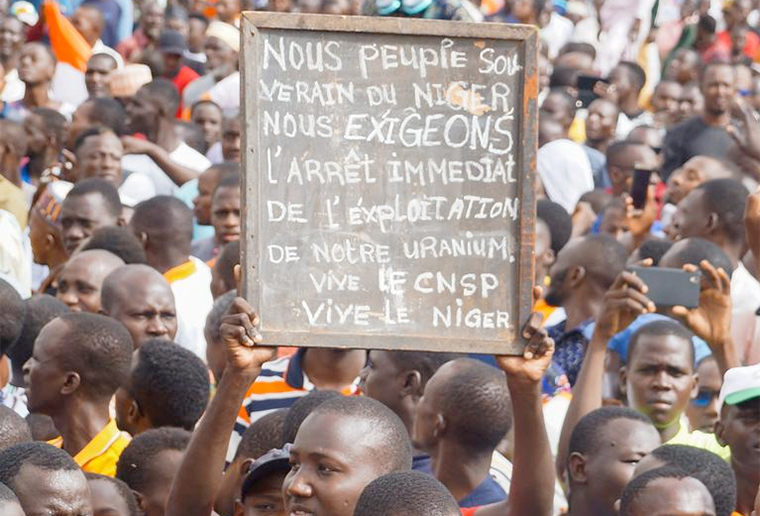 NOUS PEUPLE SOU
VERAIN DU NIGER
NOUS EXIGEONS
L'ARRÊT IMMEDIAT
DE L'EXPLOITATION
DE NOTRE URANIUM.
VIVE LE CNSP
VIVE LE NIGER